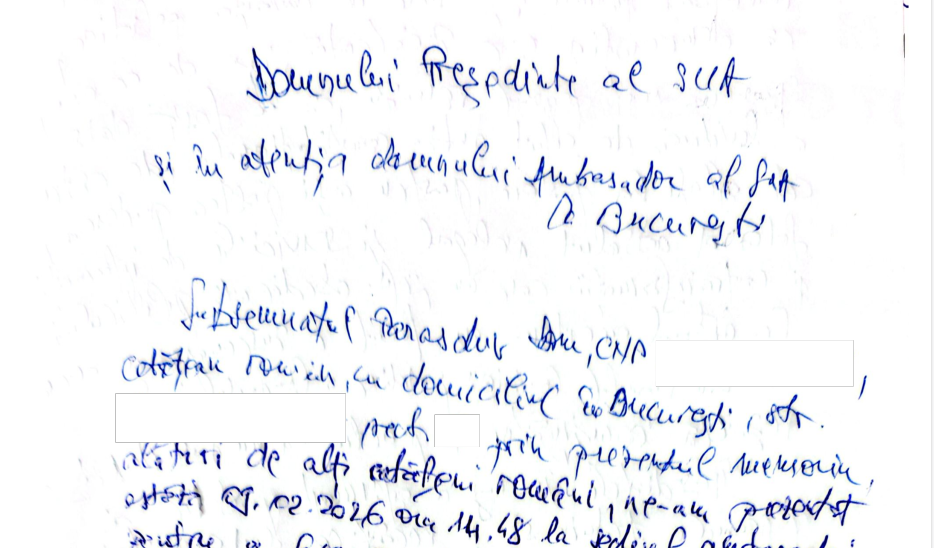 Domnului Președinte al SUA
și în atenția domnului Ambasador al SUA
în București
Subsemnatul Dan, CNP ,
cetățean român, cu domiciliul în București, str.
sect. prin prezentul memoriu,
alături de alți cetățeni români, ne-am prezentat
astăzi .02.2026 ora 14.48 la sediul